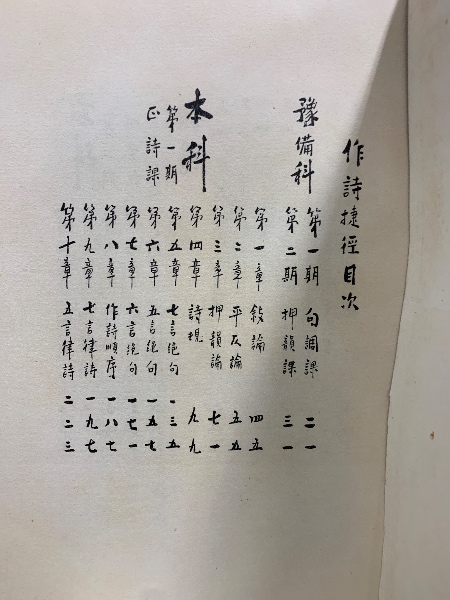 作詩捷徑目次
豫備科
第一期 句調課 二一
第二期 押韻課 三一
本科
第一期
正詩課
第一章 敍論 四五
第二章 平仄論 五五
第三章 押韻論 七一
第四章 詩規 九九
第五章 七言絕句 一三五
第六章 五言絕句 一五七
第七章 六言絕句 一七一
第八章 作詩順序 一八七
第九章 七言律詩 一九七
第十章 五言律詩 二二三